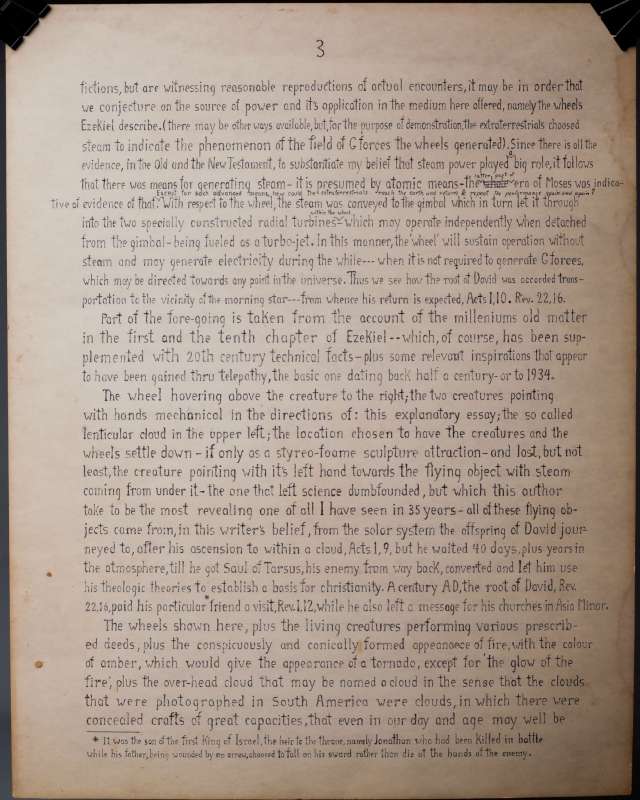 3
fictions, but are witnessing reasonable reproductions of actual encounters, it may be in order that
we conjecture on the source of power and it's application in the medium here offered, namely the wheels
Ezekiel describe. (there may be other ways available, but, for the purpose of demonstration, the extraterrestrials choosed
steam to indicate the phenomenon of the field of G forces the wheels generated). Since there is all the
evidence, in the Old and the New Testament, to substantiate my belief that steam power played a big role, it follows
that there was means for generating steam - it is presumed by atomic means - the era of Moses was indica-
Except for such advanced means, how could the extraterrestrials reach the earth and return & repeat the again?
tive of evidence of that. With respect to the wheel, the steam was conveyed to the gimbal which in turn let it through
within the wheel
into the two specially constructed radial turbines - which may operate independently when detached
from the gimbal - being fueled as a turbo-jet. In this manner, the 'wheel' will sustain operation without
steam and may generate electricity during the while --- when it is not required to generate G forces,
which may be directed towards any point in the universe. Thus we see how the root of David was accorded trans-
portation to the vicinity of the morning star --- from whence his return is expected, Acts 1,10. Rev. 22,16.
Part of the fore-going is taken from the account of the milleniums old matter
in the first and the tenth chapter of Ezekiel -- which, of course, has been sup-
plemented with 20th century technical facts - plus some relevant inspirations that appear
to have been gained thru telepathy, the basic one dating back half a century - or to 1934.
The wheel hovering above the creature to the right; the two creatures pointing
with hands mechanical in the directions of: this explanatory essay; the so called
lenticular cloud in the upper left; the location chosen to have the creatures and the
wheels settle down - if only as a styreo-foame sculpture attraction - and last, but not
least, the creature pointing with it's left hand towards the flying object with steam
coming from under it - the one that left science dumbfounded, but which this author
take to be the most revealing one of all I have seen in 35 years - all of these flying ob-
jects came from, in this writer's belief, from the solar system the offspring of David jour-
neyed to, after his ascension to within a cloud, Acts 1,9, but he waited 40 days, plus years in
the atmosphere, till he got Saul of Tarsus, his enemy from way back, converted and let him use
his theologic theories to establish a basis for christianity. A century A.D, the root of David, Rev.
22,16, paid his particular* friend a visit, Rev. 1,12, while he also left a message for his churches in Asia Minor.
The wheels shown here, plus the living creatures performing various prescrib-
ed deeds, plus the conspicuously and conically formed appeanaece of fire, with the colour
of amber, which would give the appearance of a tornado, except for 'the glow of the
fire', plus the over-head cloud that may be named a cloud in the sense that the clouds
that were photographed in South America were clouds, in which there were
concealed crafts of great capacities, that even in our day and age may well be
* It was the son of the first King of Israel, the heir to the throne, namely Jonathan who had been killed in battle
while his father, being wounded by an arrow, choosed to fall on his sword rather than die at the hands of the enemy.